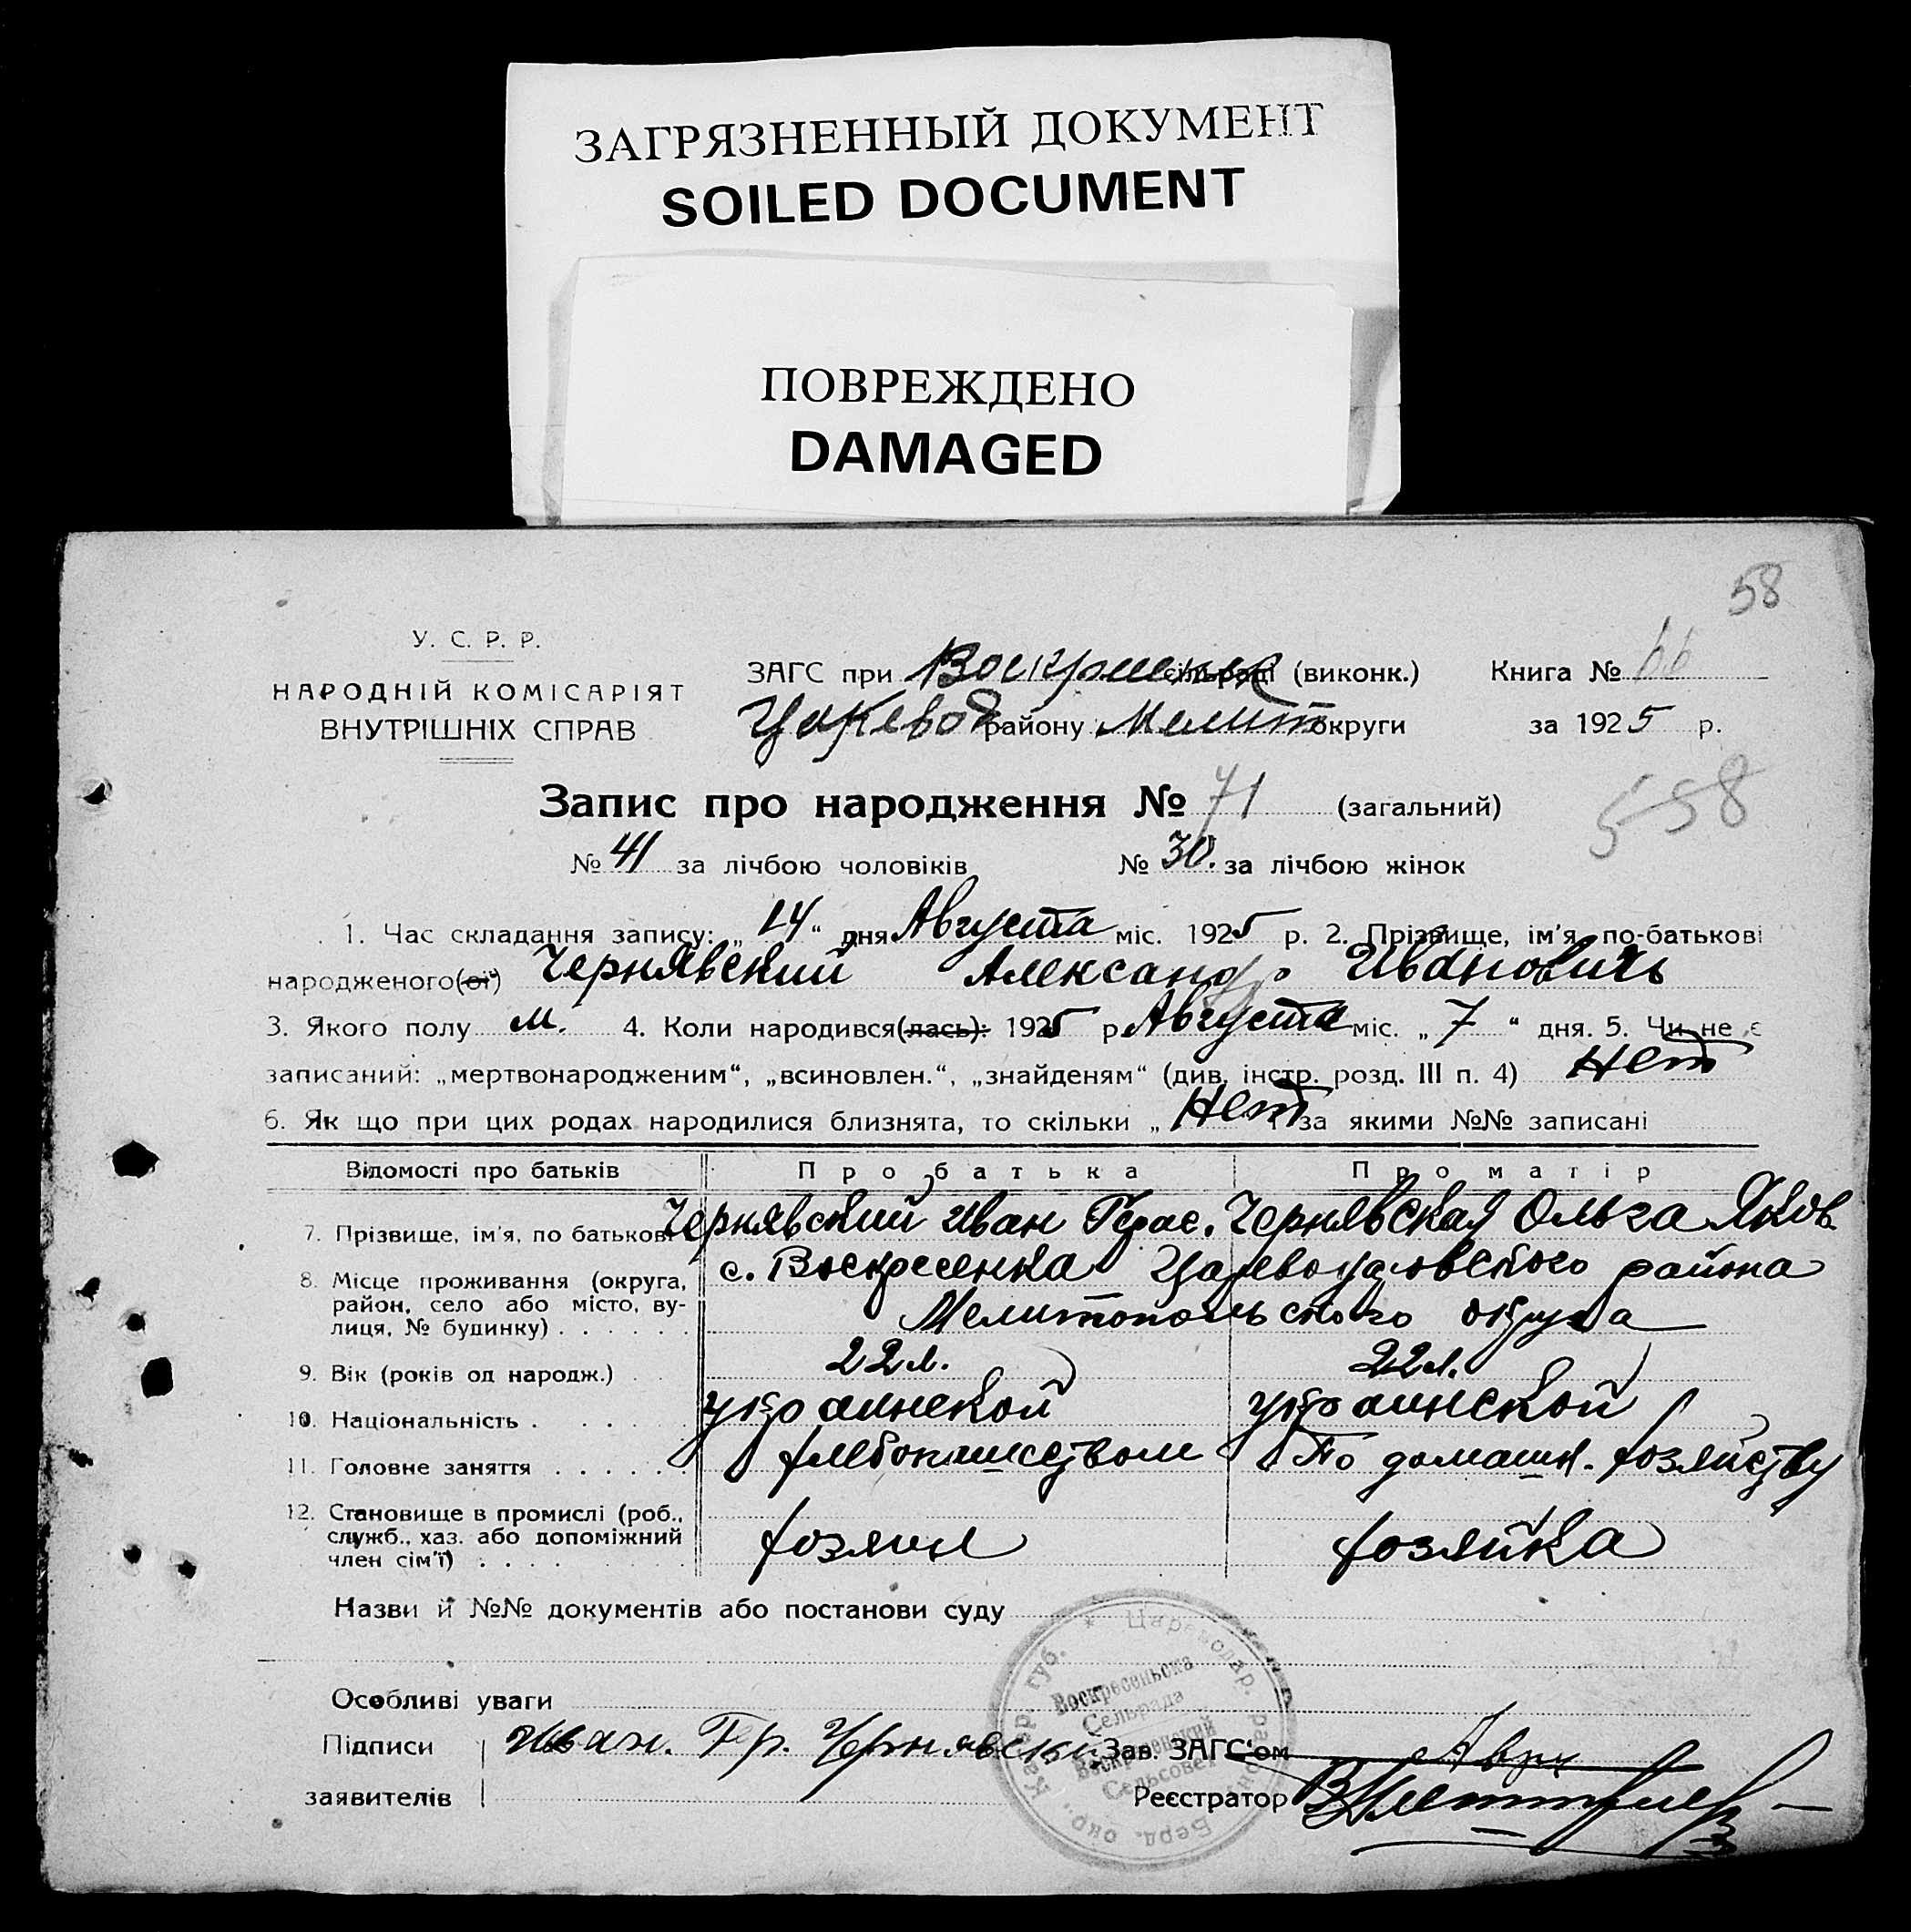 ЗАГРЯЗНЕННЫЙ ДОКУМЕНТ
SOILED DOCUMENT
ПОВРЕЖДЕНО
DAMAGED
58
У. С. Р. Р.
НАРОДНІЙ КОМІСАРІЯТ
ВНУТРІШНІХ СПРАВ
ЗАГС при Воскресенск сільраді (виконк.) Книга № 66
Царевод району Мелит округи за 1925 р.
Запис про народження № 71 (загальний)
558
№ 41 за лічбою чоловіків № 30. за лічбою жінок
1. Час складання запису: „ 14 “ дня Августа міс. 1925 р. 2. Прізвище, ім'я, по-батькові
народженого(ої) Чернявский Александр Ивановичь
3. Якого полу м. 4. Коли народився(лась): 1925 р Августа міс. „ 7 “ дня. 5. Чи не є
записаний: „мертвонародженим“, „всиновлен.“, „знайденям“ (див. інстр. розд. III п. 4) Нет
6. Як що при цих родах народилися близнята, то скільки „ Нет за якими №№ записані
Відомості про батьків Про батька Про матір
7. Прізвище, ім'я, по батькові Чернявский Иван Герас. Чернявская Ольга Яков.
8. Місце проживання (округа, район, село або місто, вулиця, № будинку) . . . . . . с. Воскресенка Царевода­ровского района
Мелитопольского округа
9. Вік (років од народж.) . . 22 л. 22 л.
10. Національність . . . . . украинской украинской
11. Головне заняття . . . . . . хлебопашеством По домашн. хозяйству
12. Становище в промислі (роб., служб., хаз. або допоміжний член сім'ї) . . . . . . хозяин хозяйка
Назви й №№ документів або постанови суду
Особливі уваги
Підписи заявителів Иван. Гер. Чернявский
Зав. ЗАГС'ом
Реєстратор
* Цареводар. району Берд. окр., Катер. губ.
Воскресенська
Сельрада
Воскресенский
Сельсовет